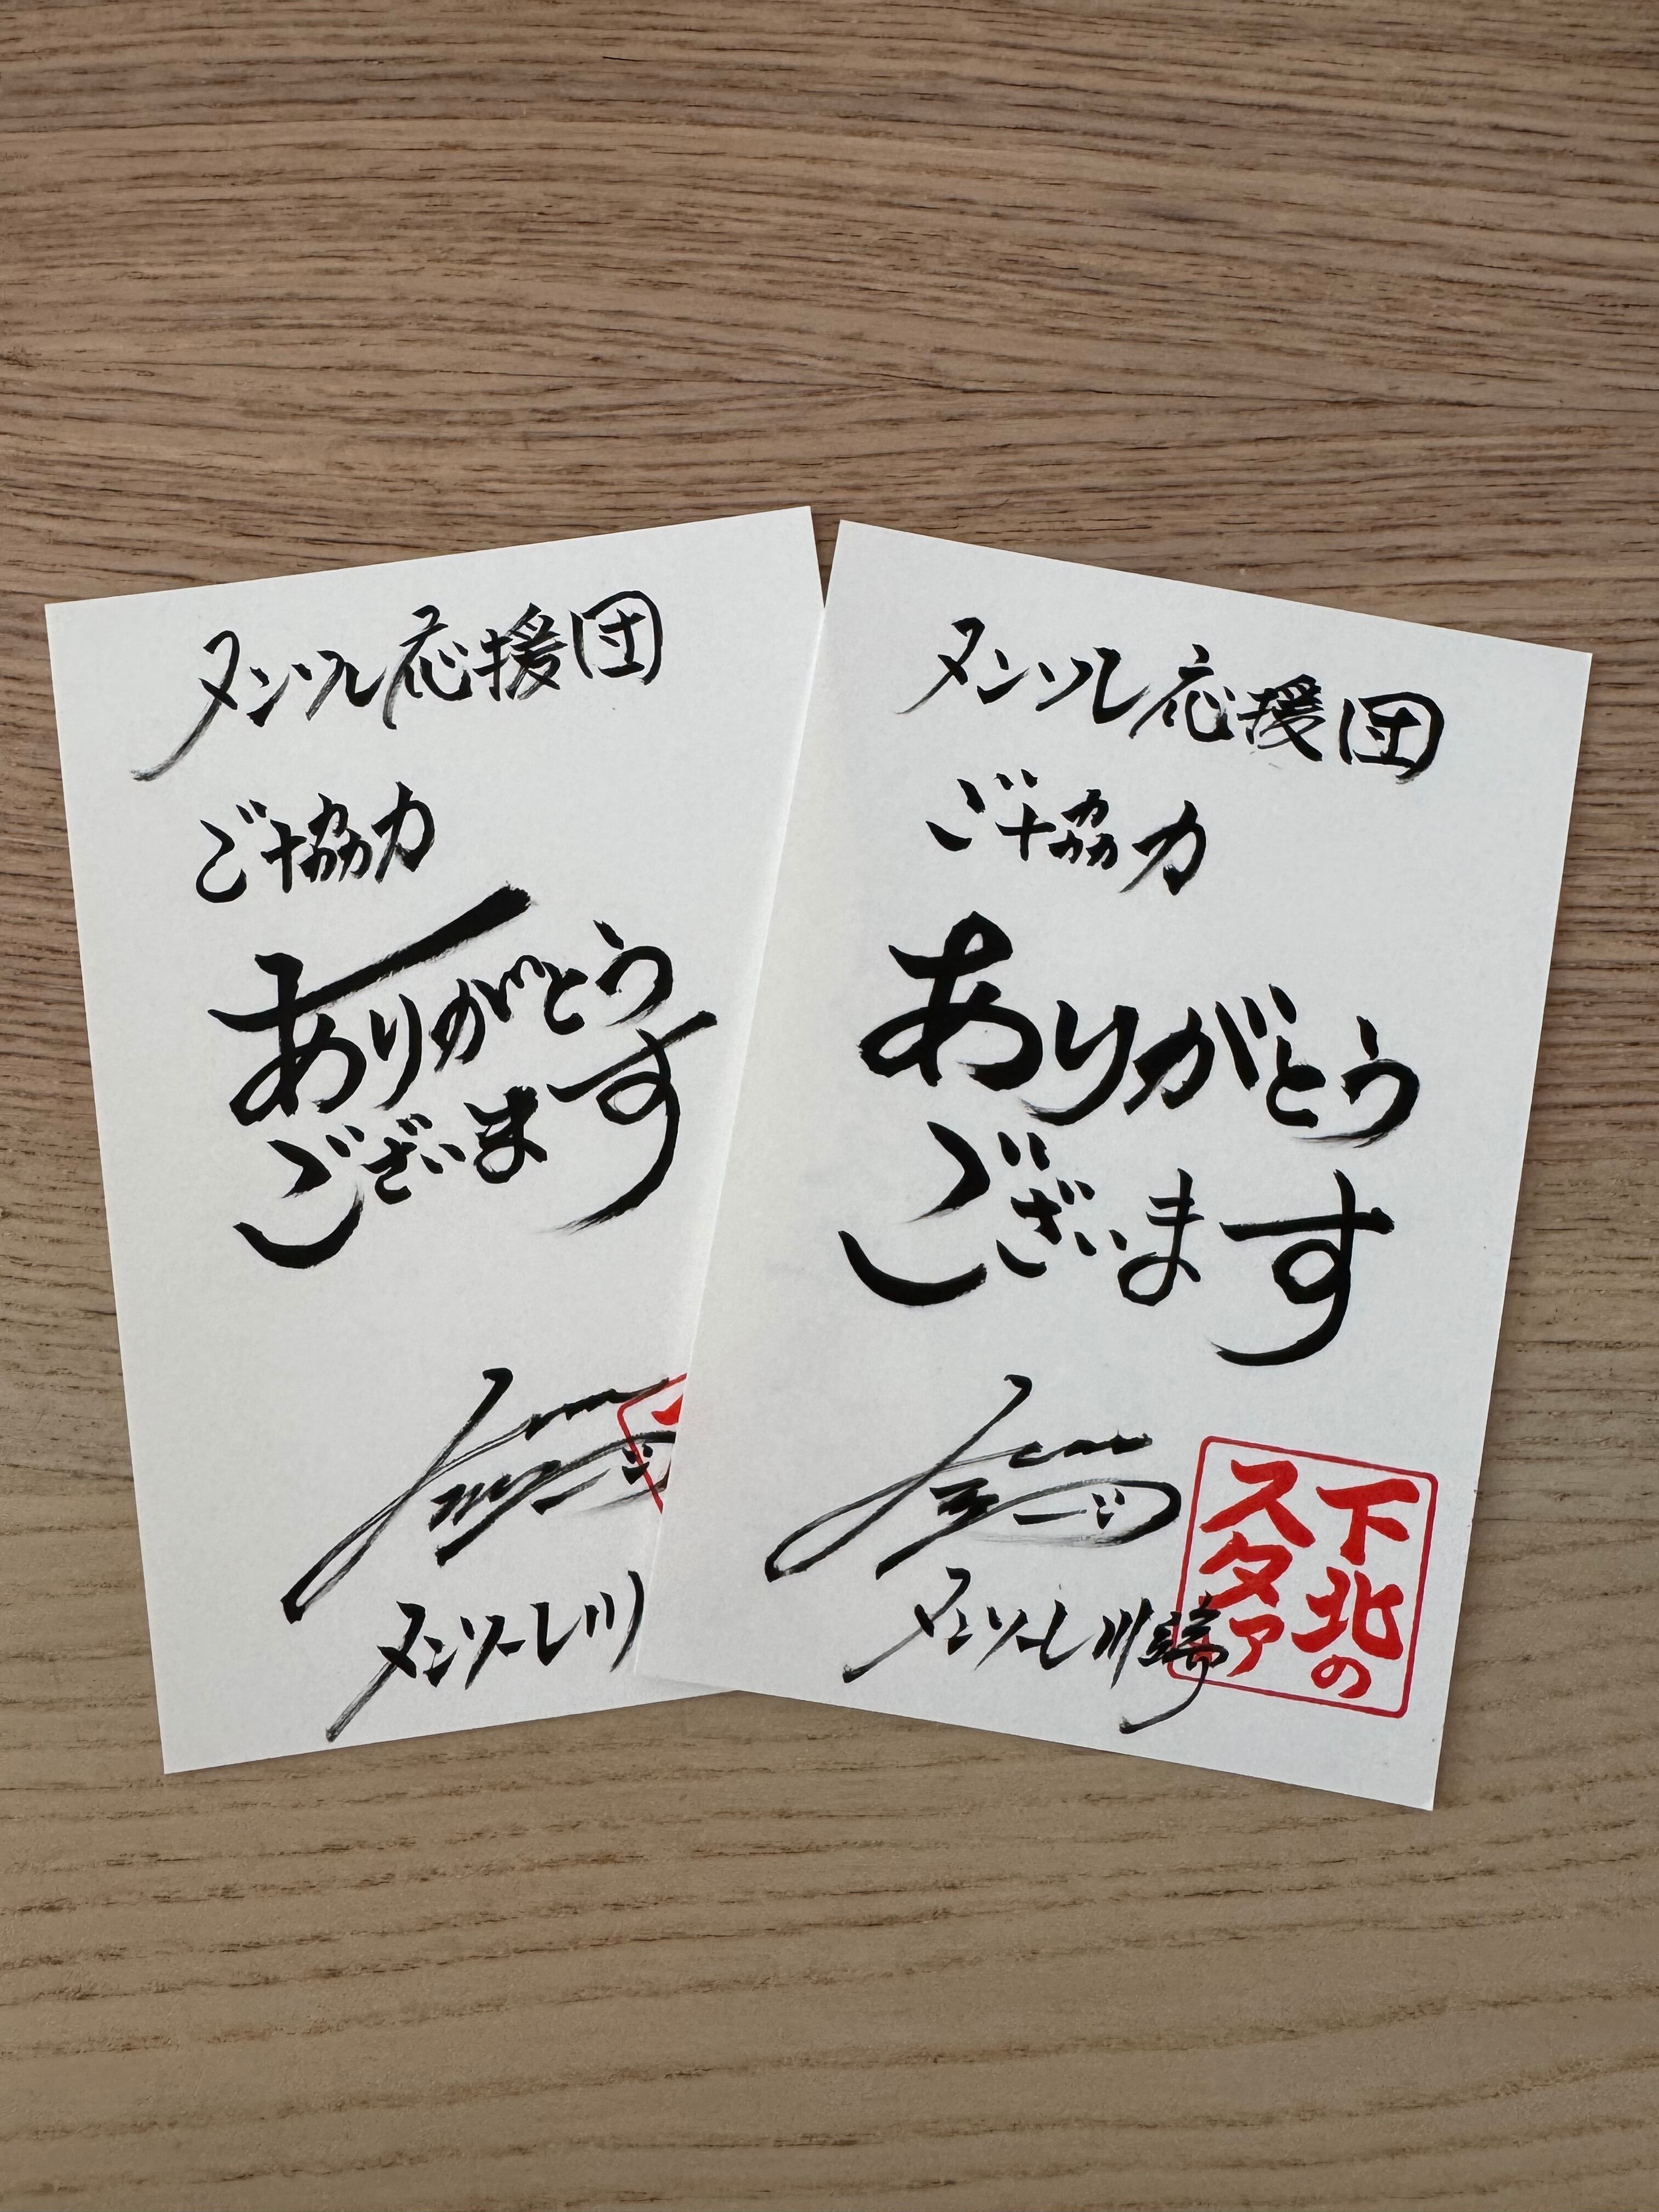 タンソレ応援団
ご協力
ありがとう
ございます
タンソーレ川
タンソレ応援団
ご協力
ありがとう
ございます
タンソーレ川崎
下北の
スタァ